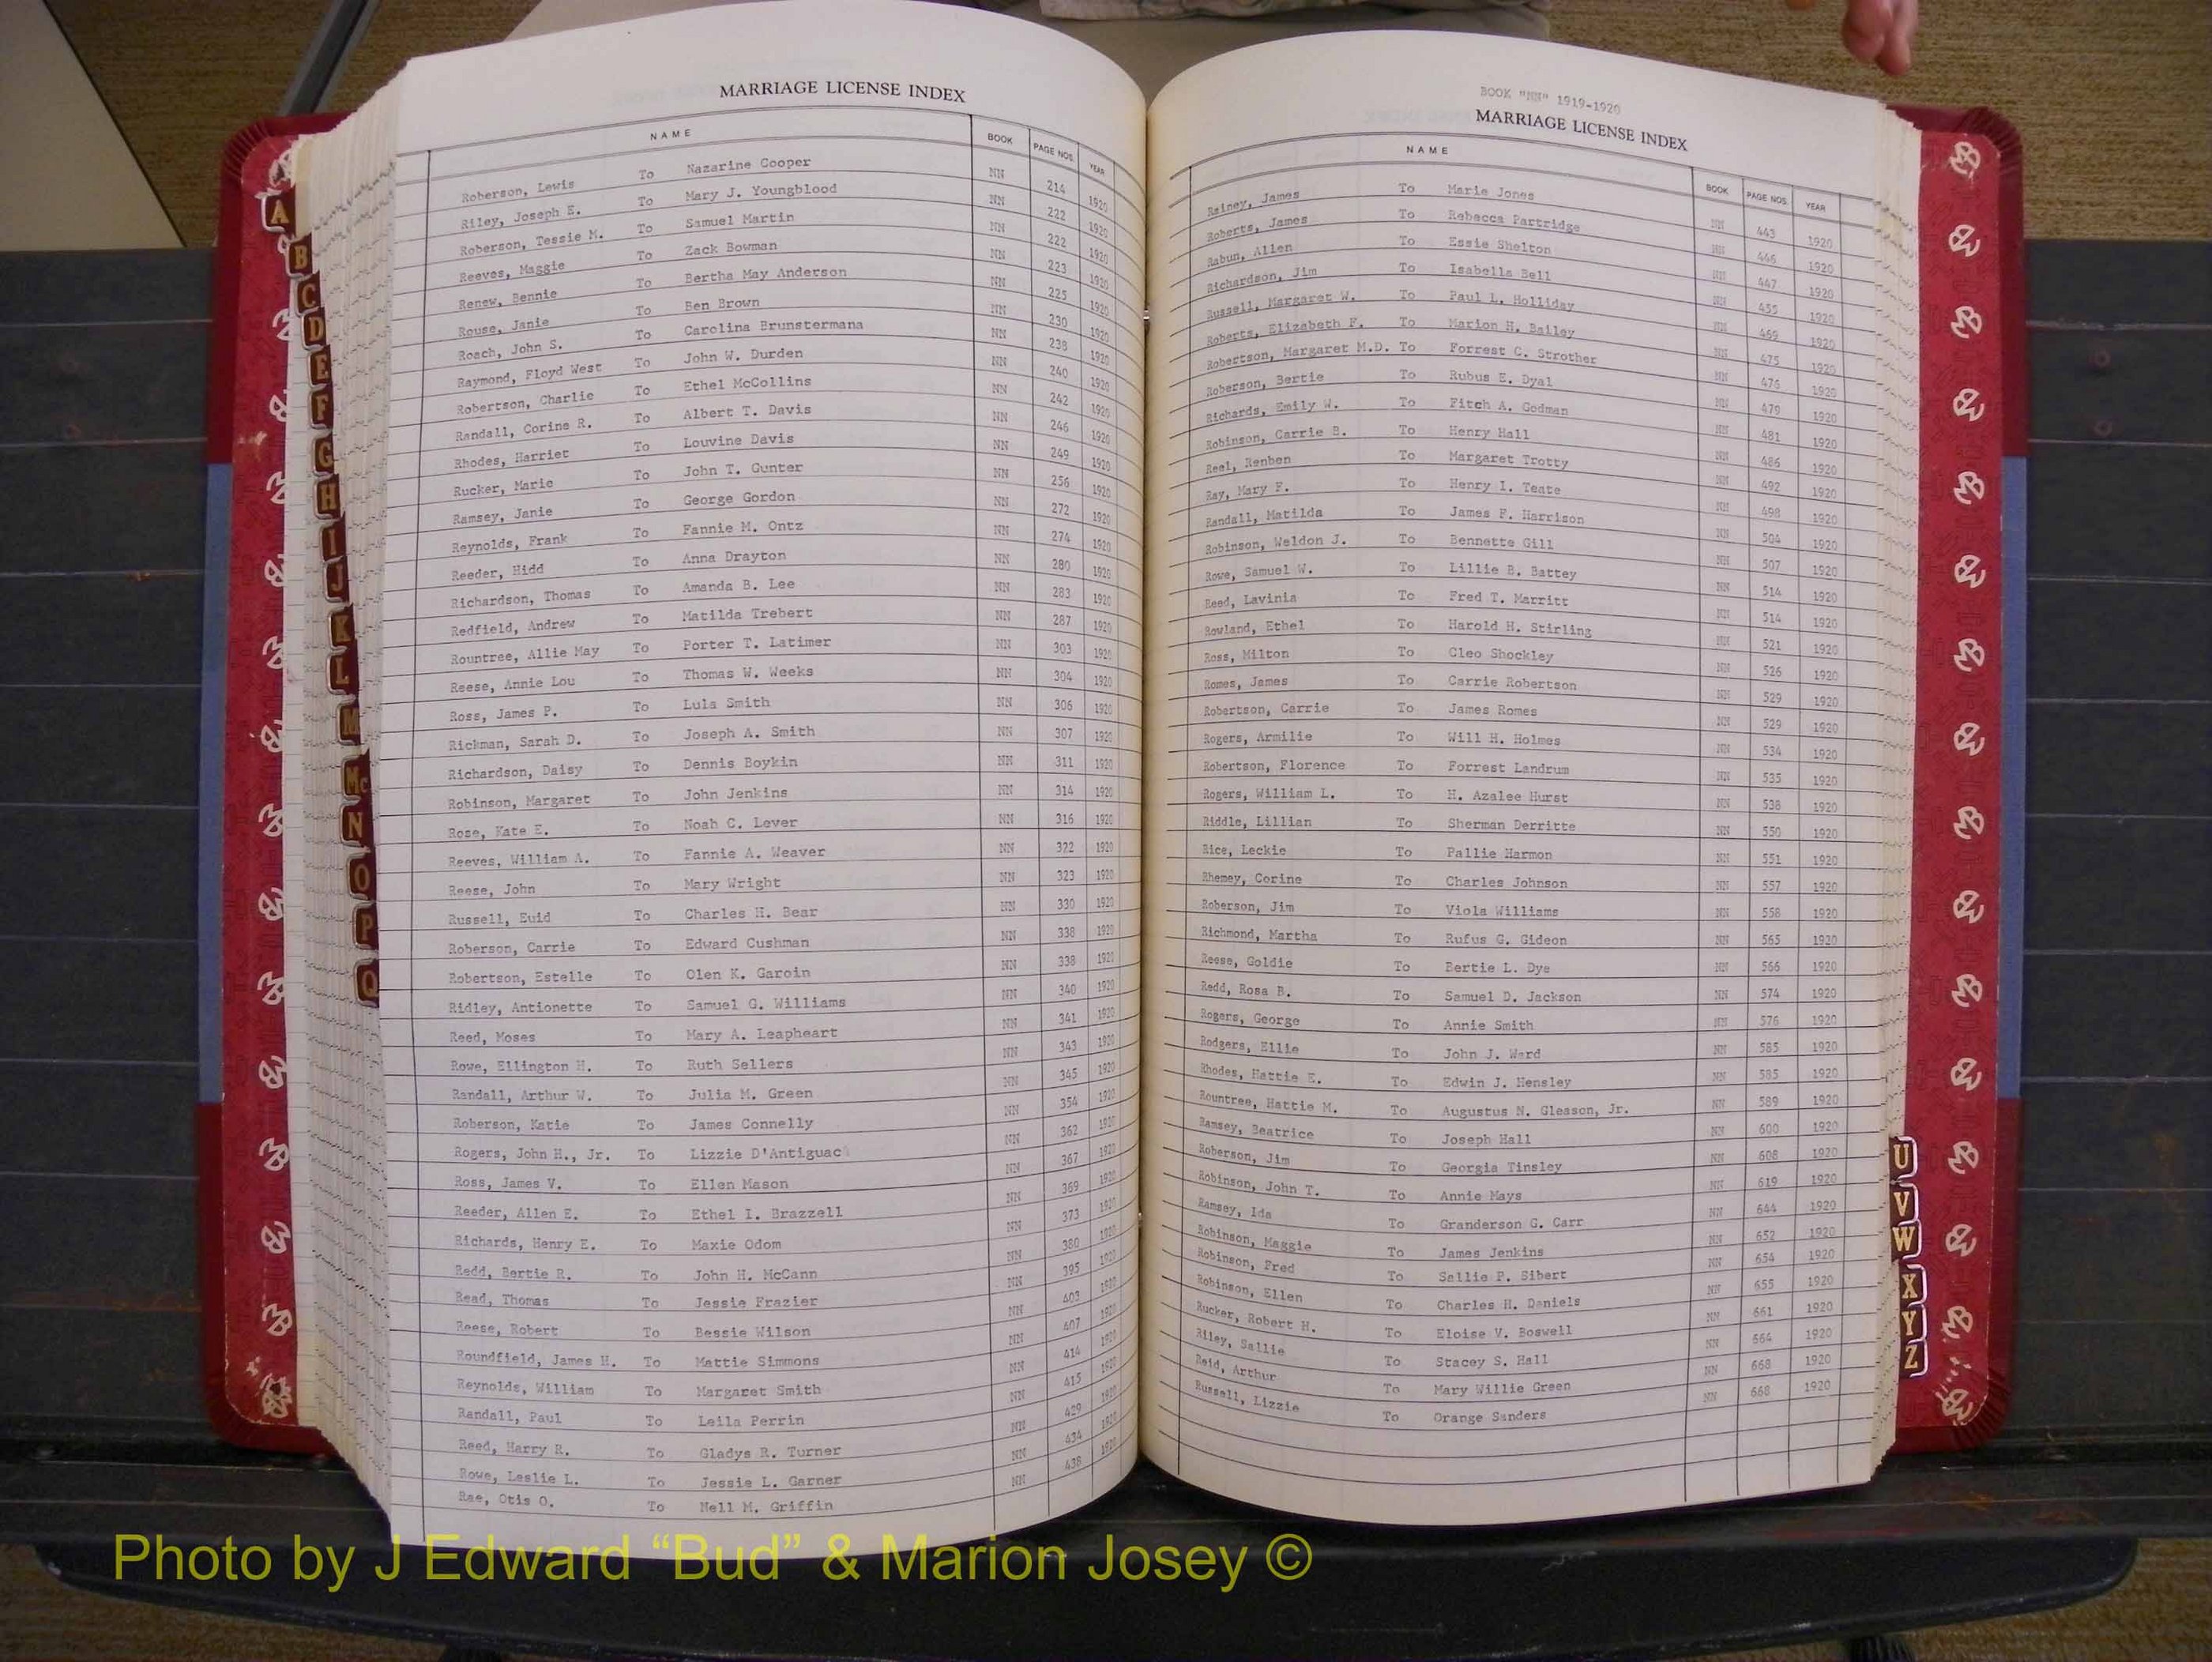 MARRIAGE LICENSE INDEX
NAME BOOK PAGE NOS. YEAR
Roberson, Lewis To Nazarine Cooper NN 214 1920
Riley, Joseph E. To Mary J. Youngblood NN 222 1920
Roberson, Tessie M. To Samuel Martin NN 222 1920
Reeves, Maggie To Zack Bowman NN 223 1920
Renew, Bennie To Bertha May Anderson NN 225 1920
Rouse, Janie To Ben Brown NN 230 1920
Roach, John S. To Carolina Brunstermana NN 238 1920
Raymond, Floyd West To John W. Durden NN 240 1920
Robertson, Charlie To Ethel McCollins NN 242 1920
Randall, Corine R. To Albert T. Davis NN 246 1920
Rhodes, Harriet To Louvine Davis NN 249 1920
Rucker, Marie To John T. Gunter NN 256 1920
Ramsey, Janie To George Gordon NN 272 1920
Reynolds, Frank To Fannie M. Ontz NN 274 1920
Reeder, Hidd To Anna Drayton NN 280 1920
Richardson, Thomas To Amanda B. Lee NN 283 1920
Redfield, Andrew To Matilda Trebert NN 287 1920
Rountree, Allie May To Porter T. Latimer NN 303 1920
Reese, Annie Lou To Thomas W. Weeks NN 304 1920
Ross, James P. To Lula Smith NN 306 1920
Rickman, Sarah D. To Joseph A. Smith NN 307 1920
Richardson, Daisy To Dennis Boykin NN 311 1920
Robinson, Margaret To John Jenkins NN 314 1920
Rose, Kate E. To Noah C. Lever NN 316 1920
Reeves, William A. To Fannie A. Weaver NN 322 1920
Reese, John To Mary Wright NN 323 1920
Russell, Euid To Charles H. Bear NN 330 1920
Roberson, Carrie To Edward Cushman NN 338 1920
Robertson, Estelle To Olen K. Garoin NN 338 1920
Ridley, Antionette To Samuel G. Williams NN 340 1920
Reed, Moses To Mary A. Leapheart NN 341 1920
Rowe, Ellington H. To Ruth Sellers NN 343 1920
Randall, Arthur W. To Julia M. Green NN 345 1920
Roberson, Katie To James Connelly NN 354 1920
Rogers, John H., Jr. To Lizzie D'Antiguac NN 362 1920
Ross, James V. To Ellen Mason NN 367 1920
Reeder, Allen E. To Ethel I. Brazzell NN 369 1920
Richards, Henry E. To Maxie Odom NN 373 1920
Redd, Bertie R. To John H. McCann NN 380 1920
Read, Thomas To Jessie Frazier NN 395 1920
Reese, Robert To Bessie Wilson NN 403 1920
Roundfield, James H. To Mattie Simmons NN 407 1920
Reynolds, William To Margaret Smith NN 414 1920
Randall, Paul To Leila Perrin NN 415 1920
Reed, Harry R. To Gladys R. Turner NN 429 1920
Rowe, Leslie L. To Jessie L. Garner NN 434 1920
Rae, Otis O. To Nell M. Griffin NN 438 1920
BOOK "NN" 1919-1920
MARRIAGE LICENSE INDEX
NAME BOOK PAGE NOS. YEAR
Rainey, James To Marie Jones NN 443 1920
Roberts, James To Rebecca Partridge NN 446 1920
Rabun, Allen To Essie Shelton NN 447 1920
Richardson, Jim To Isabella Bell NN 455 1920
Russell, Margaret W. To Paul L. Holliday NN 469 1920
Roberts, Elizabeth F. To Marion H. Bailey NN 475 1920
Robertson, Margaret M.D. To Forrest C. Strother NN 476 1920
Roberson, Bertie To Rubus E. Dyal NN 479 1920
Richards, Emily W. To Fitch A. Godman NN 481 1920
Robinson, Carrie B. To Henry Hall NN 486 1920
Reel, Renben To Margaret Trotty NN 492 1920
Ray, Mary F. To Henry I. Teate NN 498 1920
Randall, Matilda To James F. Harrison NN 504 1920
Robinson, Weldon J. To Bennette Gill NN 507 1920
Rowe, Samuel W. To Lillie B. Battey NN 514 1920
Reed, Lavinia To Fred T. Marritt NN 514 1920
Rowland, Ethel To Harold H. Stirling NN 521 1920
Ross, Milton To Cleo Shockley NN 526 1920
Romes, James To Carrie Robertson NN 529 1920
Robertson, Carrie To James Romes NN 529 1920
Rogers, Armilie To Will H. Holmes NN 534 1920
Robertson, Florence To Forrest Landrum NN 535 1920
Rogers, William L. To H. Azalee Hurst NN 538 1920
Riddle, Lillian To Sherman Derritte NN 550 1920
Rice, Leckie To Pallie Harmon NN 551 1920
Rhemey, Corine To Charles Johnson NN 557 1920
Roberson, Jim To Viola Williams NN 558 1920
Richmond, Martha To Rufus G. Gideon NN 565 1920
Reese, Goldie To Bertie L. Dye NN 566 1920
Redd, Rosa B. To Samuel D. Jackson NN 574 1920
Rogers, George To Annie Smith NN 576 1920
Rodgers, Ellie To John J. Ward NN 585 1920
Rhodes, Hattie E. To Edwin J. Hensley NN 585 1920
Rountree, Hattie M. To Augustus N. Gleason, Jr. NN 589 1920
Ramsey, Beatrice To Joseph Hall NN 600 1920
Roberson, Jim To Georgia Tinsley NN 608 1920
Robinson, John T. To Annie Mays NN 619 1920
Ramsey, Ida To Granderson G. Carr NN 644 1920
Robinson, Maggie To James Jenkins NN 652 1920
Robinson, Fred To Sallie P. Sibert NN 654 1920
Robinson, Ellen To Charles H. Daniels NN 655 1920
Rucker, Robert H. To Eloise V. Boswell NN 661 1920
Riley, Sallie To Stacey S. Hall NN 664 1920
Reid, Arthur To Mary Willie Green NN 668 1920
Russell, Lizzie To Orange Sanders NN 668 1920
A
B
C
D
E
F
G
H
I
J
K
L
M
Mc
N
O
P
Q
U
V
W
X
Y
Z
Photo by J Edward “Bud” & Marion Josey ©